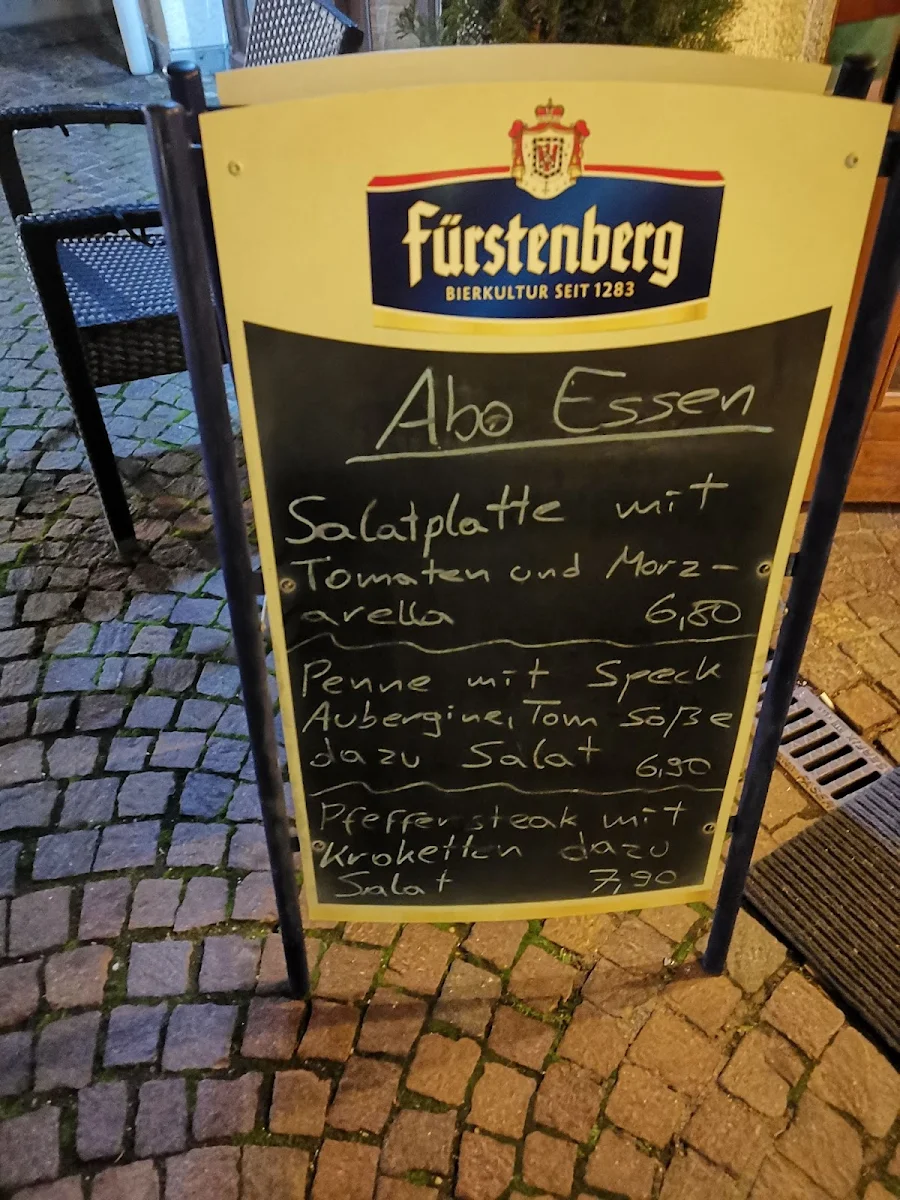 Fürstenberg
BIERKULTUR SEIT 1283
Abo Essen
Salatplatte mit
Tomaten und Morz-
arella 6,80
Penne mit Speck
Aubergine, Tom Soße
dazu Salat 6,90
Pfeffersteak mit
Kroketten dazu
Salat 7,90